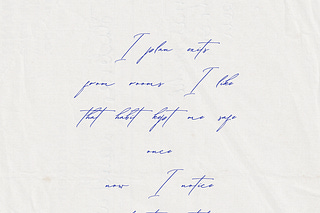 I plan exits
from rooms I like
that habit kept me safe
once
now I notice